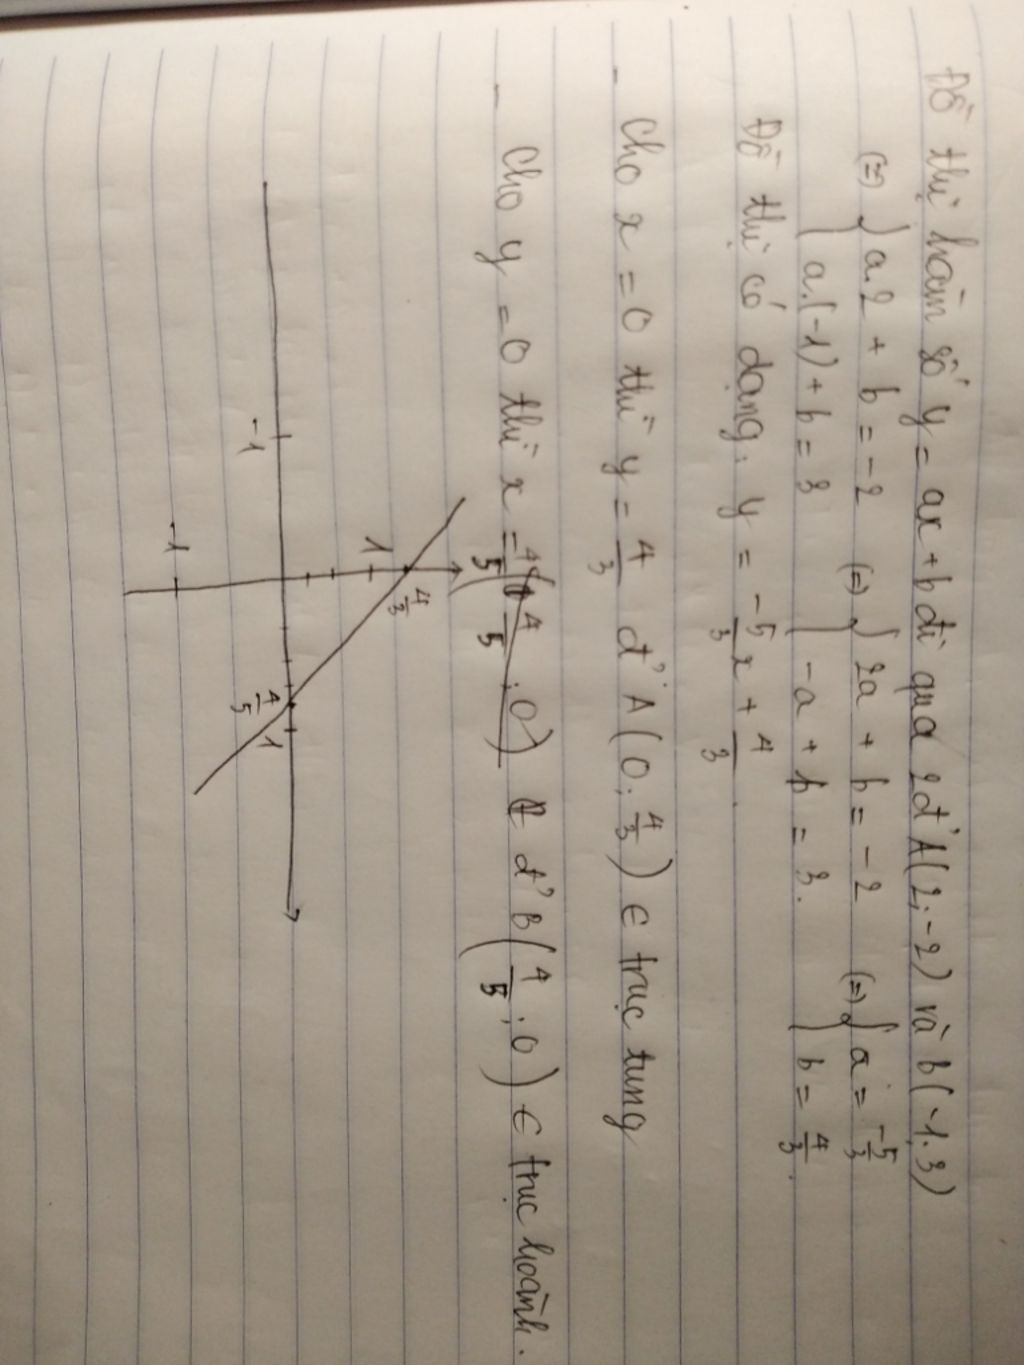 Đồ thị hàm số y = ax + b đi qua 2đ' A(2; -2) và b(-1,3)
(=) { a.2 + b = -2 (=) { 2a + b = -2 (=) { a = -5/3
a.(-1) + b = 3 -a + b = 3. b = 4/3.
Đồ thị có dạng: y = -5/3 x + 4/3.
- Cho x = 0 thì y = 4/3 đ' A(0; 4/3) ∈ trục tung
- Cho y = 0 thì x = 4/5 đ' B(4/5; 0) ∈ trục hoành.
4/3
1
-1
4/5
1
-1